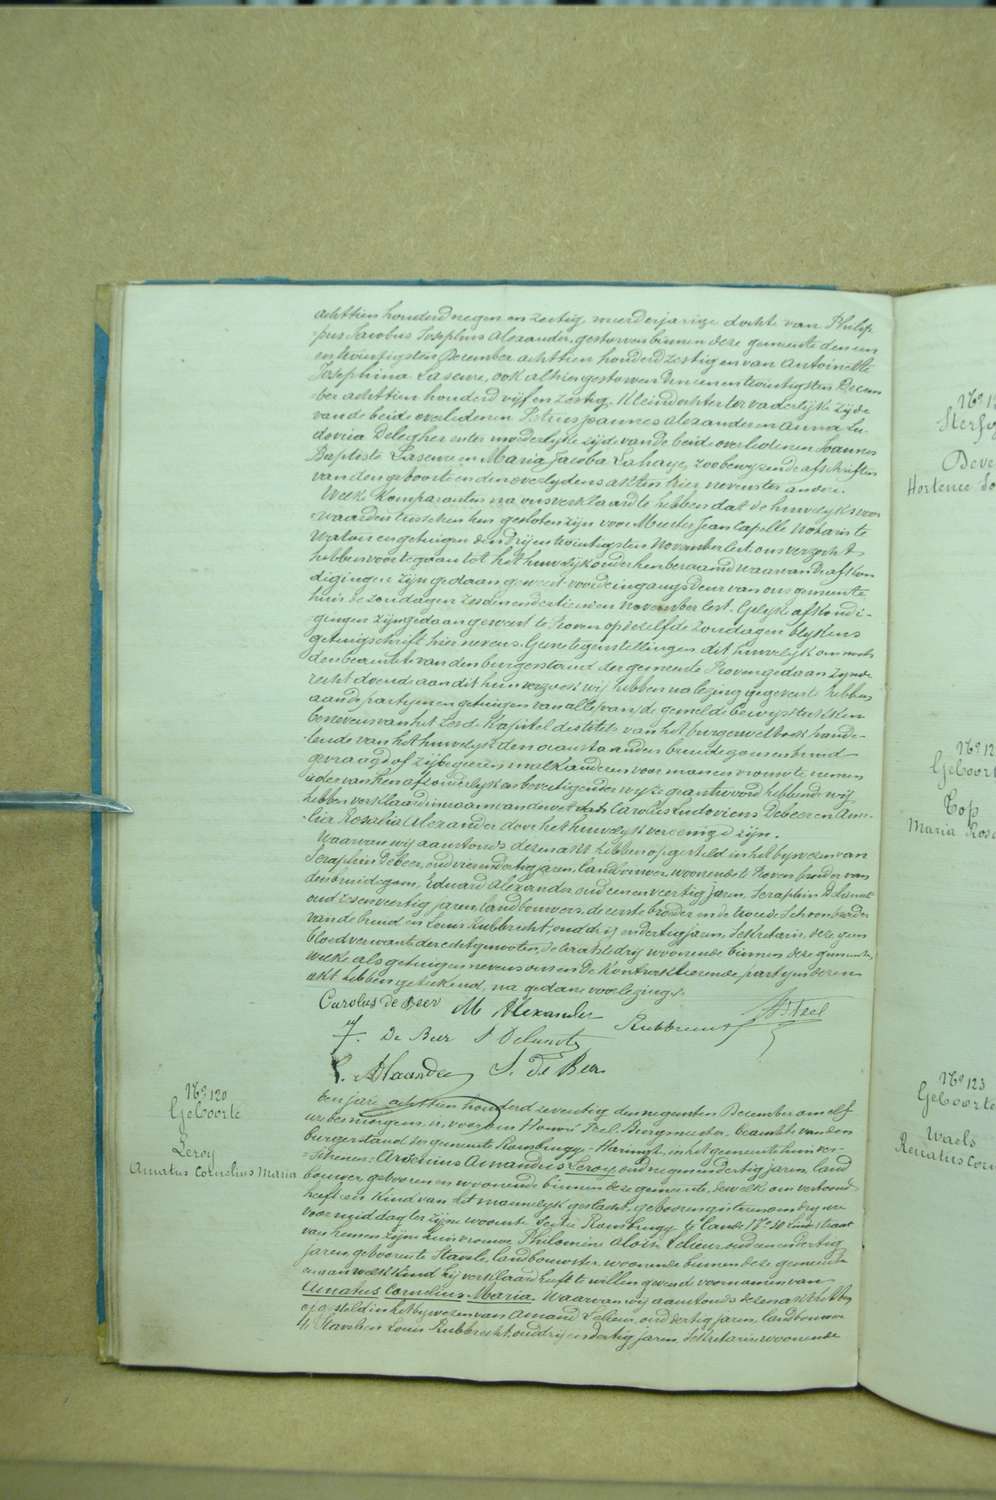 achttien honderd negen en zestig, meerderjarige dochter van Philip-
pus Jacobus Josephus Alexander, gestorven binnen deze gemeente den een
en twintigsten December achttien honderd zestig en van Antoinette
Josephina Laseure, ook alhier gestorven den een en twintigsten Decem-
ber achttien honderd vijf en zestig. Kleindochter ter vaderlijke zijde
van de beide overledenen Petrus Joannes Alexander en Anna Lu-
dovica Delegher en ter moederlijke zijde van de beide overledenen Joannes
Baptiste Laseure en Maria Jacoba Lahaye, zoo bewijzende afschriften
van den geboorte en den overlydens akten hier nevens ter andere.
Welke Komparanten na ons verklaard te hebben dat de huwelijksvoor-
waarden tusschen hen gesloten zijn voor Meester Jean Capelle Notaris te
Watou en getuigen den drij en twintigsten November lest ons verzocht
hebben voortegaan tot het huwelijk onder hen beraamd waarvan de afkon
digingen zijn gedaan geweest voor de ingangsdeur van ons gemeente
huis de zondagen zesden en dertienden November lest. Gelyke afkondi-
gingen zijn gedaan geweest te Proven op dezelfde zondagen blykens
getuigschrift hier nevens. Geene tegenstellingen dit huwelijk ons nochte
den beambte van den burgerstand der gemeente Proven gedaan zynde
recht doende aan dit hun verzoek wij hebben na lezing gegeven te hebben
aan de partijen en getuigen van alle van de gemelde bewijsstukken
benevens van het zesde Kapitel des titels van het burgerwetboek hande-
lende van het huwelijk den aanstaanden bruidegom en bruid
gevraagd of zij begeeren malkanderen voor man en vrouw te nemen
ieder van hen afzonderlyk en bevestigender wyze geantwoord hebbende wij
hebben verklaard in naam van de wet dat Carolus Ludovicus Debeer en Ame-
lia Rosalia Alexander door het huwelyk vereenigd zijn.
Waarvan wij aanstonds dezen akt hebben opgesteld in het bywezen van
Seraphin Debeer, oud vier en dertig jaren, landbouwer, woonende te Proven broeder van
den bruidegom, Eduard Alexander oud een en veertig jaren, Seraphin
oud zes en veertig jaren, landbouwers, de eerste broeder en de tweede schoonbroeder
van de bruid en Louis Rubbrecht, oud drij en dertig jaren, Sekretaris, deze geen
bloedverwant der echtgenooten, de laatste drij woonende binnen deze gemeente,
welke als getuigen nevens ons en de Kontrakteerende partijen dezen
akt hebben geteekend, na gedane voorlezing.
Carolus de Beer M. Alexander Rubbrecht H. Feel
F. De Beer
E. Alexander S. De Beer
No 120
Geboorte
Leroy
Amatus Cornelius Maria
Den jare achttien honderd zeventig den negensten December om elf
ure des morgens, is, voor ons Henri Feel, Burgmeester, beambte van den
burgerstand der gemeente Rousbrugge-Haringhe, in het gemeentehuis ver-
schenen: Arsenius Amandus Leroy, oud negen en dertig jaren, land
bouwer geboren en woonende binnen deze gemeente, dewelke ons vertoond
heeft een kind van het mannelyk geslacht, geboren gisteren om drij ure
voormiddag ter zijne woonste Sectie Rousbrugge te lande No 10
van hem en zijne huisvrouwe Philomene Aloise Lelieur, oud een en dertig
jaren, geboren te Stavele, landbouwster, woonende binnen deze gemeente
en aan welk Kind hij verklaard heeft te willen gevend voornamen van
Amatus Cornelius Maria. Waarvan wij aanstonds dezen akt hebben
opgesteld in het bywezen van Amand Lelieur, oud dertig jaren, landbouwer
te Stavele en Louis Rubbrecht, oud drij en dertig jaren, Sekretaris woonende
No 12
Geboort
Top
Maria Rosa
Hortence
No 123
Geboorte
Waels
Renatus Corn